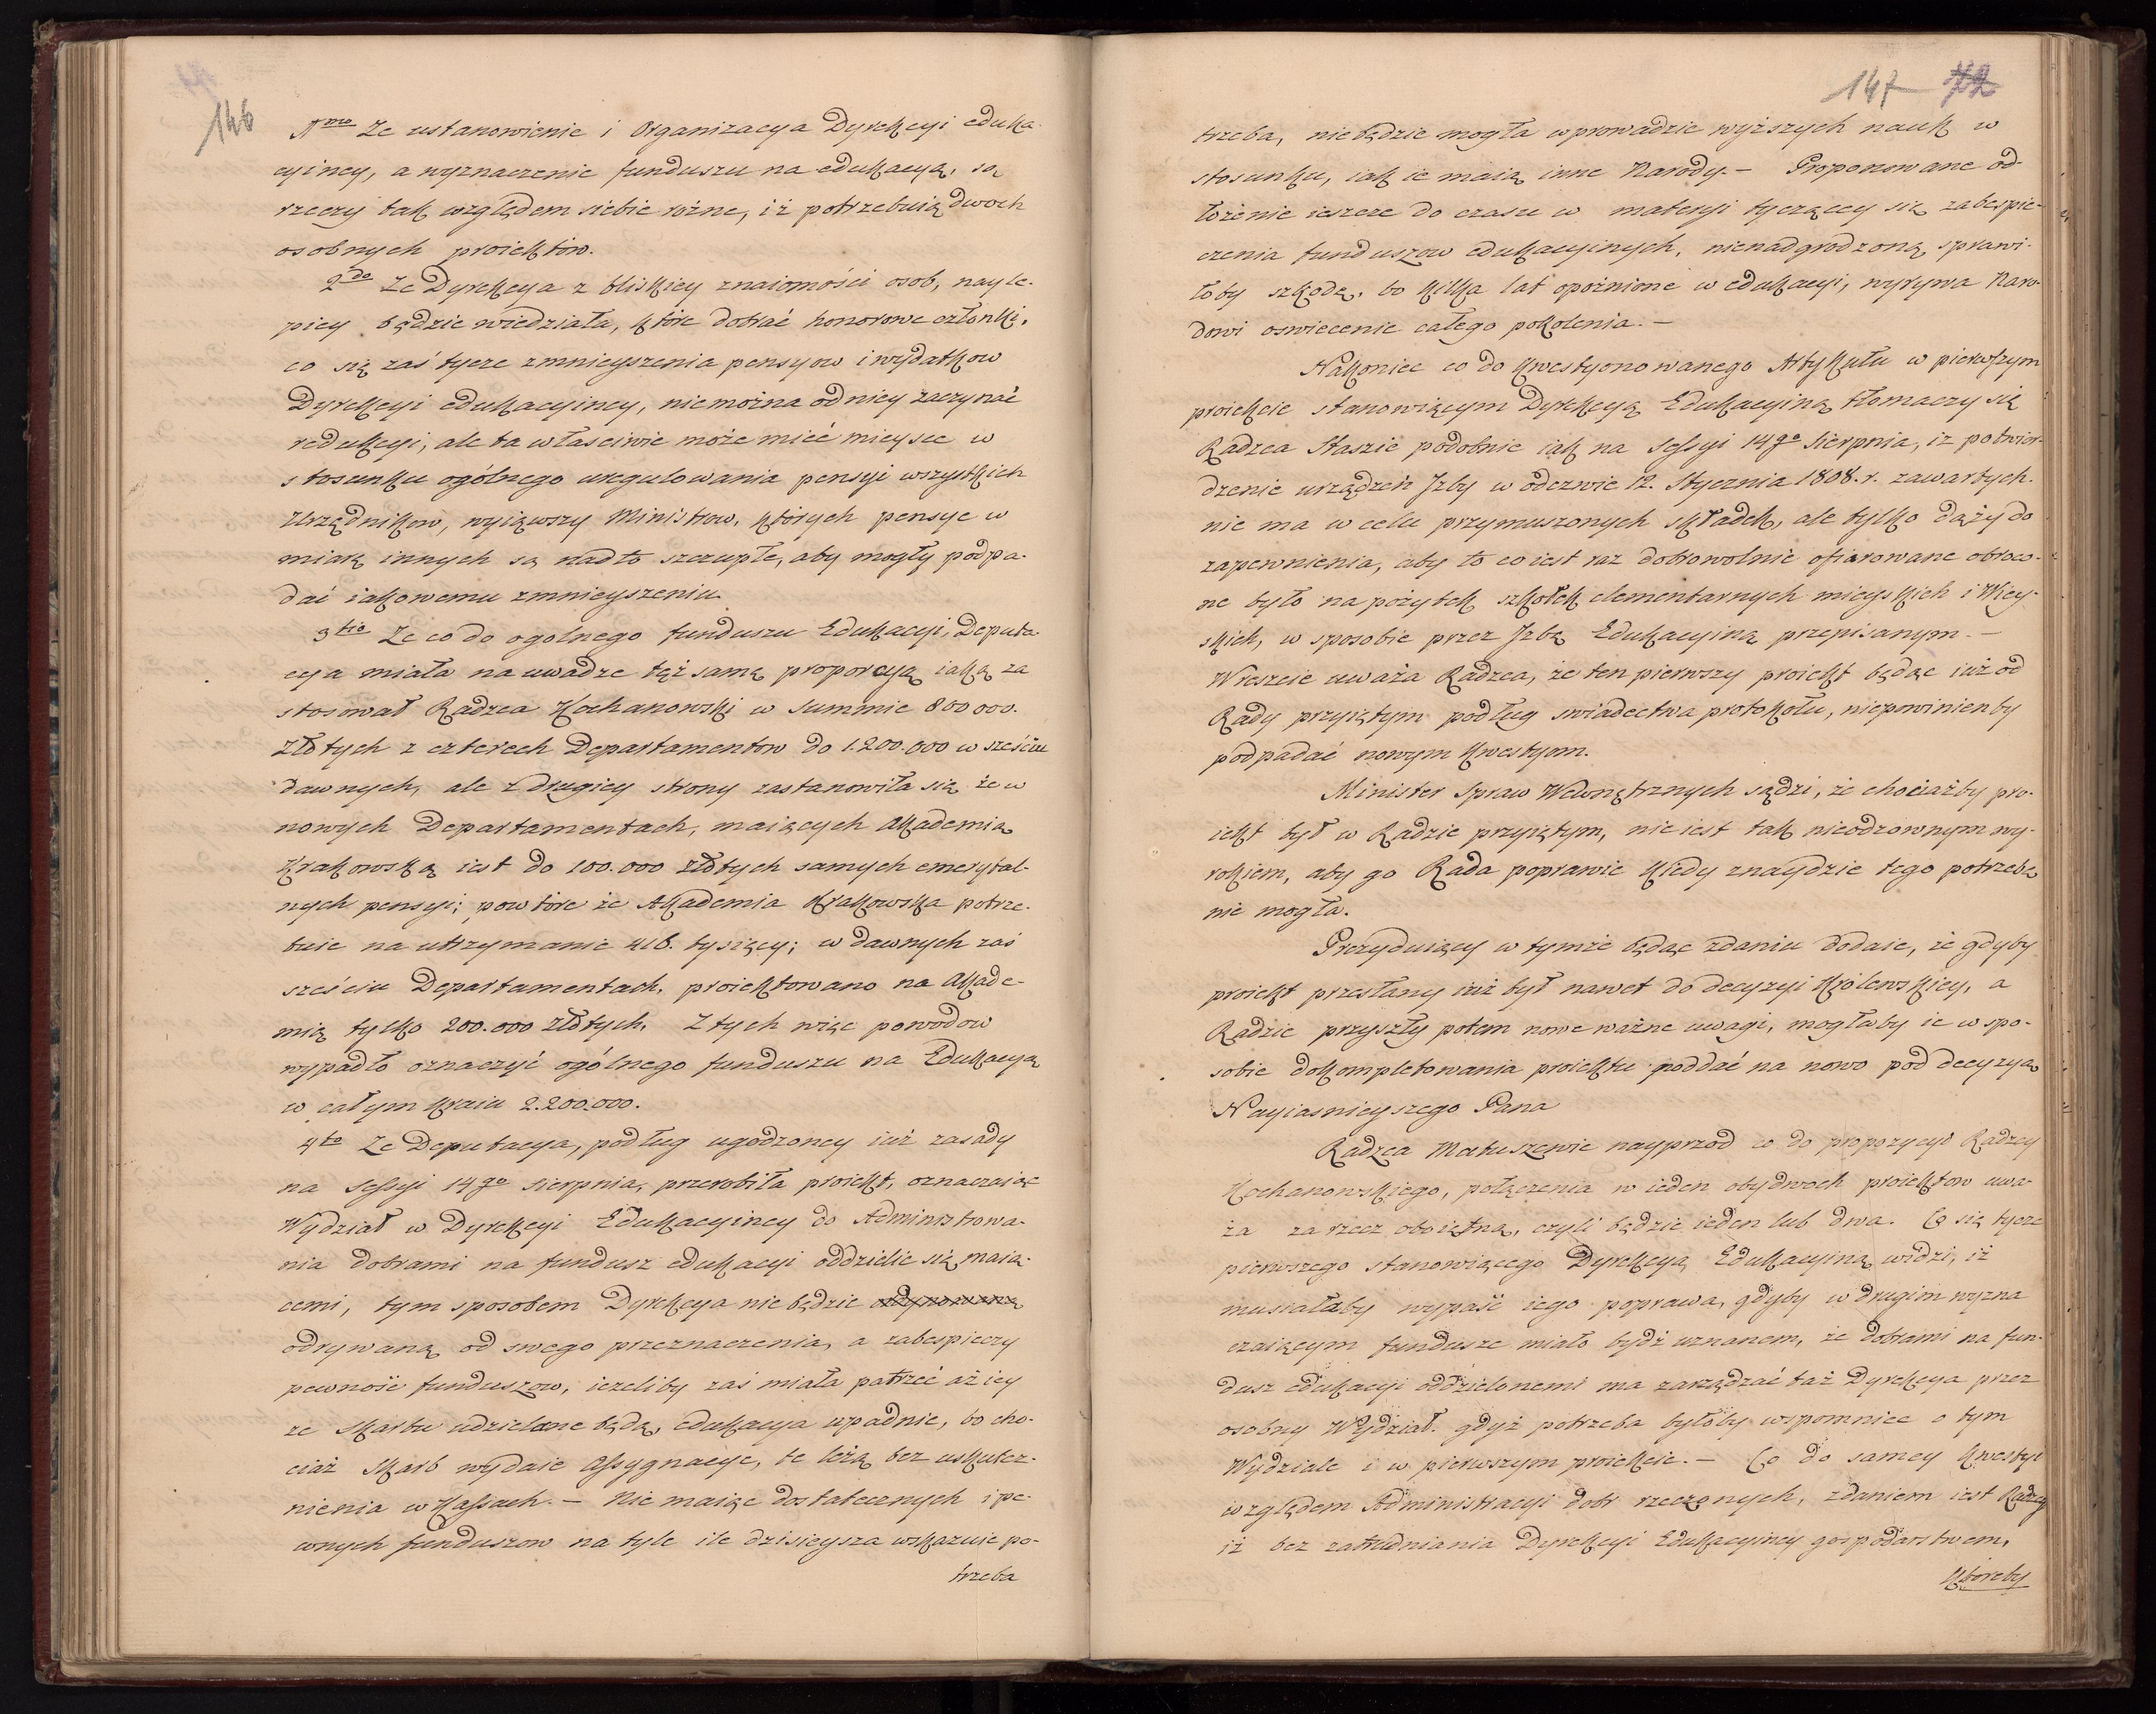 146
1mo Ze ustanowienie i Organizacya Dyrekcyi eduka-
cyiney, a wyznaczenie funduszu na edukacyą, są
rzeczy tak względem siebie rożne, iż potrzebuią dwoch
osobnych proiektów.
2do Ze Dyrekcya z bliskiey znaiomości osob, nayle-
piey będzie wiedziała, które dobrać honorowe członki,
co się zaś tycze zmnieyszenia pensyow i wydatkow
Dyrekcyi edukacyiney, niemożna od niey zaczynać
redukcyi, ale ta właściwie może mieć mieysce w
stosunku ogólnego uregulowania pensyi wszystkich
Urzędnikow, wyiąwszy Ministrow, których pensye w
miarę innych są nadto szczupłe, aby mogły podpa-
dać iakowemu zmnieyszeniu
3tio Ze co do ogolnego funduszu Edukacyi, Deputa-
cya miała na uwadze tęż samą proporcyą iaką za
stosował Radzca Kochanowski w Summie 800 000.
Złotych z czterech Departamentow do 1.200.000 w sześciu
dawnych, ale z drugiey strony zastanowiła się że w
nowych Departamentach, maiących Akademią
Krakowską iest do 100.000 złotych samych emerytal-
nych pensyi; powtóre że Akademia Krakowska potrze-
buie na utrzymanie 416. tysięcy; w dawnych zaś
sześciu Departamentach, proiektowano na Akade-
mią tylko 200.000 złotych. Z tych więc powodow
wypadło oznaczyć ogólnego funduszu na Edukacyą
w całym kraiu 2.200.000.
4to Ze Deputacya, podług ugodzoney iuż zasady
na Sessyi 14go Sierpnia, przerobiła proiekt, oznaczaiąc
Wydział w Dyrekcyi Edukacyiney do Administrowa-
nia dobrami na fundusz edukacyi oddzielic się maią-
cemi, tym sposobem Dyrekcya nie będzie
odrywaną od swego przeznaczenia, a zabespieczy
pewnośc funduszow, ieżeliby zaś miała patrzeć aż iey
ze Skarbu udzielone będą, edukacya upadnie, bo cho-
ciaż Skarb wydaie Assygnacye, te leżą bez uskutecz-
nienia w Kassach. – Nie maiąc dostatecznych i pe-
wnych funduszow na tyle ile dzisieysza wskazuie po-
trzeba
147 72
trzeba, niebędzie mogła wprowadzic wyższych nauk w
stosunku, iak ie maią inne Narody. – Proponowane od-
łożenie ieszcze do czasu w materyi tyczącey się zabespie-
czenia funduszow edukacyinych, nienadgrodzoną sprawi-
łoby szkodę, bo kilka lat opóźnione w edukacyi, wyrywa Naro-
dowi oswiecenie całego pokolenia. –
Nakoniec co do kwestyonowanego Artykułu w pierwszym
proiekcie stanowiącym Dyrekcyą Edukacyiną tłomaczy się
Radzca Staszic podobnie iak na Sessyi 14go Sierpnia, iż potwier-
dzenie urządzeń Izby w odezwie 12. Stycznia 1808. r. zawartych.
nie ma w celu przymuszonych składek, ale tylko dąży do
zapewnienia, aby to co iest raz dobrowolnie ofiarowane obroco-
ne było na pożytek szkołek elementarnych mieyskich i Wiey-
skich, w sposobie przez Izbę Edukacyiną przepisanym. –
Wreszcie uważa Radzca, że ten pierwszy proiekt będąc iuż od
Rady przyiętym podług swiadectwa protokołu, niepowinienby
podpadać nowym kwestyom.
Minister Spraw Wewnętrznych sądzi, że chociażby pro-
iekt był w Radzie przyiętym, nie iest tak nieodzownym wy-
rokiem, aby go Rada poprawic kiedy znaydzie tego potrzebę
nie mogła.
Prezyduiący w tymże będąc zdaniu dodaie, że gdyby
proiekt przesłany iuż był nawet do decyzyi Królewskiey, a
Radzie przyszły potem nowe ważne uwagi, mogłaby ie w spo-
sobie dokompletowania proiektu poddać na nowo pod decyzyą
Nayiasnieyszego Pana
Radzca Matuszewic nayprzod co do propozycyi Radzcy
Kochanowskiego, połączenia w ieden obydwoch proiektow uwa-
ża za rzecz oboiętną, czyli będzie ieden lub dwa. Co się tycze
pierwszego stanowiącego Dyrekcyą Edukacyiną widzi, iż
musiałaby wypaść iego poprawa, gdyby w drugim wyzna
czaiącym fundusze miało bydź uznanem, że dobrami na fun-
dusz edukacyi oddzielonemi ma zarządzać taż Dyrekcya przez
osobny Wydział. gdyż potrzeba byłoby wspomniec o tym
Wydziale i w pierwszym proiekcie. – Co do samey kwestyi
względem Administracyi dobr rzeczonych, zdaniem iest Radzcy
iż bez zatrudniania Dyrekcyi Edukacyiney gospodarstwem,
któreby